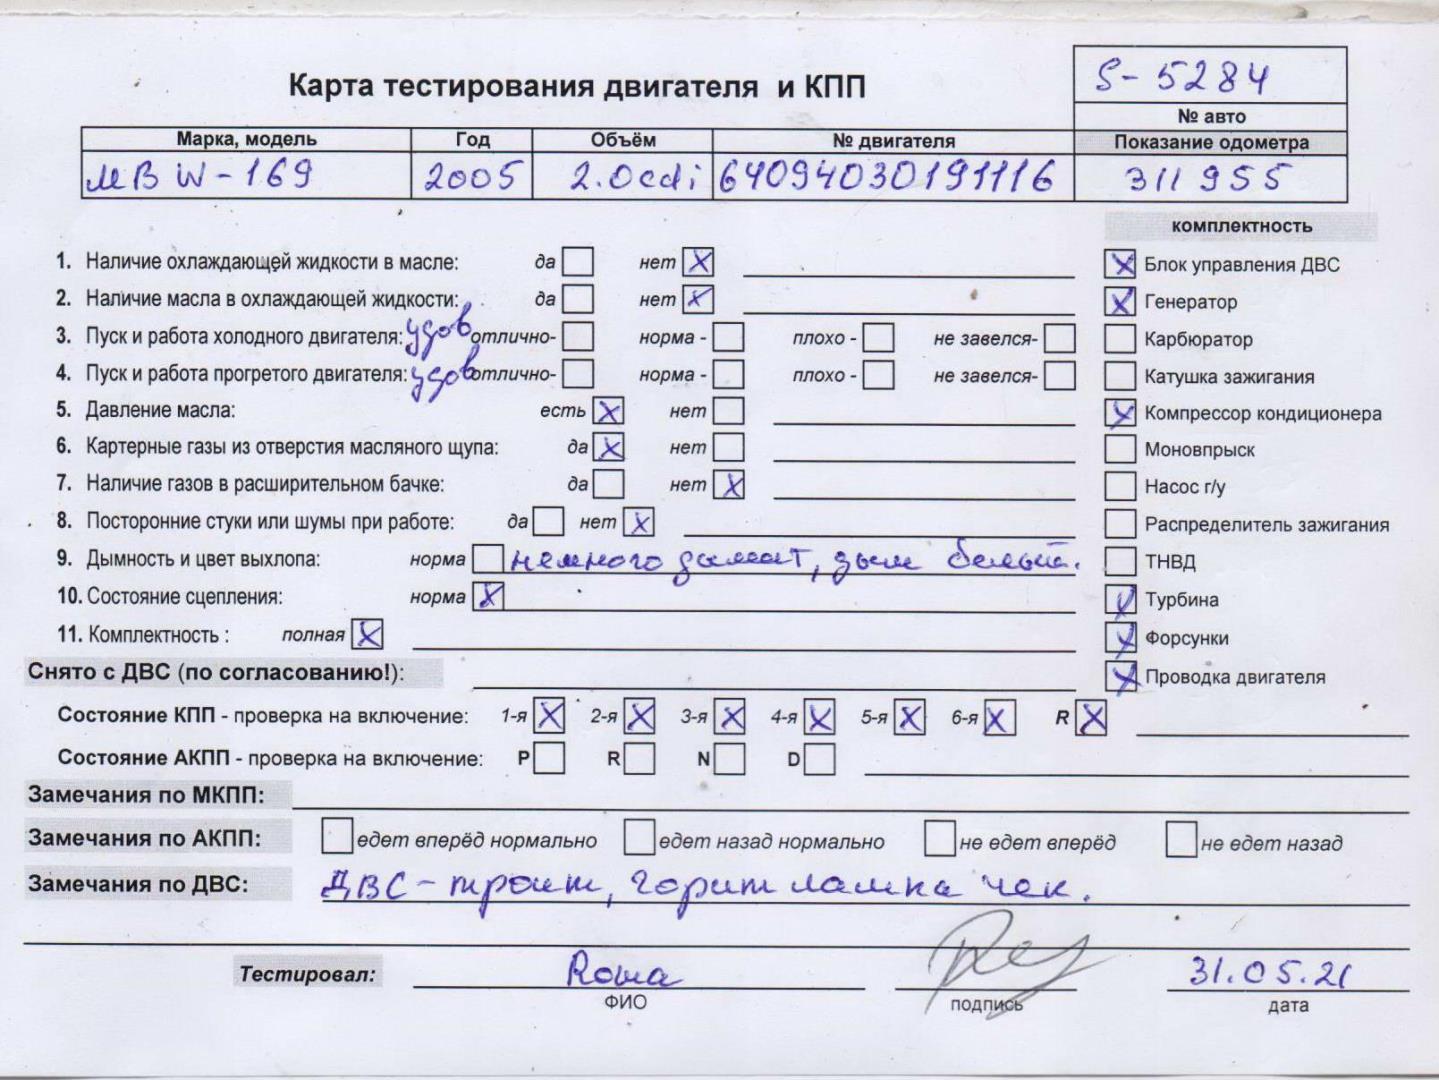 S-5284
Карта тестирования двигателя и КПП
№ авто
Марка, модель Год Объём № двигателя Показание одометра
МВ W-169 2005 2.0cdi 64094030191116 311955
комплектность
1. Наличие охлаждающей жидкости в масле: да нет X X Блок управления ДВС
2. Наличие масла в охлаждающей жидкости: да нет X X Генератор
3. Пуск и работа холодного двигателя: удов отлично- норма - плохо - не завелся- Карбюратор
4. Пуск и работа прогретого двигателя: удов отлично- норма - плохо - не завелся- Катушка зажигания
5. Давление масла: есть X нет X Компрессор кондиционера
6. Картерные газы из отверстия масляного щупа: да X нет Моновпрыск
7. Наличие газов в расширительном бачке: да нет X Насос г/у
8. Посторонние стуки или шумы при работе: да нет X Распределитель зажигания
9. Дымность и цвет выхлопа: норма немного дымит, дым белый. ТНВД
10. Состояние сцепления: норма X X Турбина
11. Комплектность : полная X X Форсунки
Снято с ДВС (по согласованию!): X Проводка двигателя
Состояние КПП - проверка на включение: 1-я X 2-я X 3-я X 4-я X 5-я X 6-я X R X
Состояние АКПП - проверка на включение: P R N D
Замечания по МКПП:
Замечания по АКПП: едет вперёд нормально едет назад нормально не едет вперёд не едет назад
Замечания по ДВС: ДВС - троит, горит лампа чек.
Тестировал: Рома 31.05.21
ФИО подпись дата